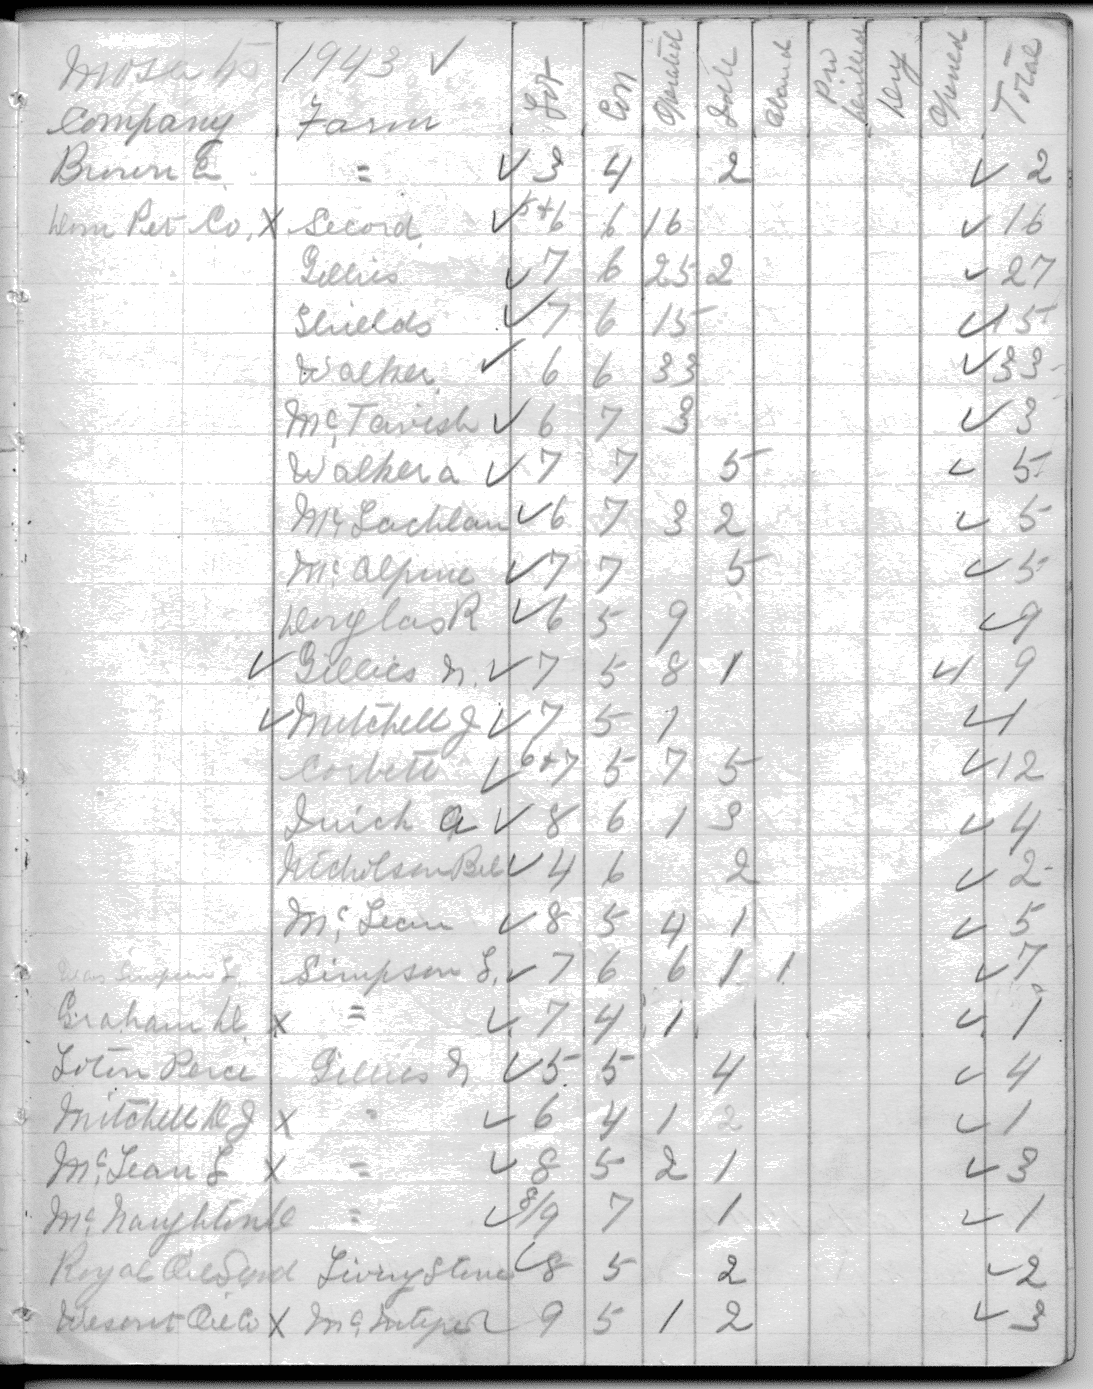 Mosa 1943 ✓
Company Farm Lot Con Operated Idle Aband Dry Opened Total
Brown E. = ✓ 3 4 2 ✓ 2
Dom Pet Co. X Secord ✓ 5+6 6 16 ✓ 16
Gillies ✓ 7 6 25 2 ✓ 27
Shields ✓ 7 6 15 ✓ 15
Walker ✓ 6 6 33 ✓ 33
Mc Tavish ✓ 6 7 3 ✓ 3
Walker a ✓ 7 7 5 ✓ 5
Mc Lachlan ✓ 6 7 3 2 ✓ 5
Mc Alpine ✓ 7 7 5 ✓ 5
Douglas R ✓ 6 5 9 ✓ 9
✓ Gillies N. ✓ 7 5 8 1 ✓ 9
✓ Mitchell J ✓ 7 5 1 ✓ 1
Corbett ✓ 6+7 5 7 5 ✓ 12
a ✓ 8 6 1 3 ✓ 4
Nicholson ✓ 4 6 2 ✓ 2
Mc Lean ✓ 8 5 4 1 ✓ 5
Simpson L. Simpson L. ✓ 7 6 6 1 1 ✓ 7
Graham D. X = ✓ 7 4 1 ✓ 1
Gillies N ✓ 5 5 4 ✓ 4
Mitchell D J X = ✓ 6 4 1 2 ✓ 1
Mc Lean L X = ✓ 8 5 2 1 ✓ 3
Mc Naughton D = ✓ 8/9 7 1 ✓ 1
Royal Oil Synd Livingstone ✓ 8 5 2 ✓ 2
Oil Co X Mc Intyre R 9 5 1 2 ✓ 3